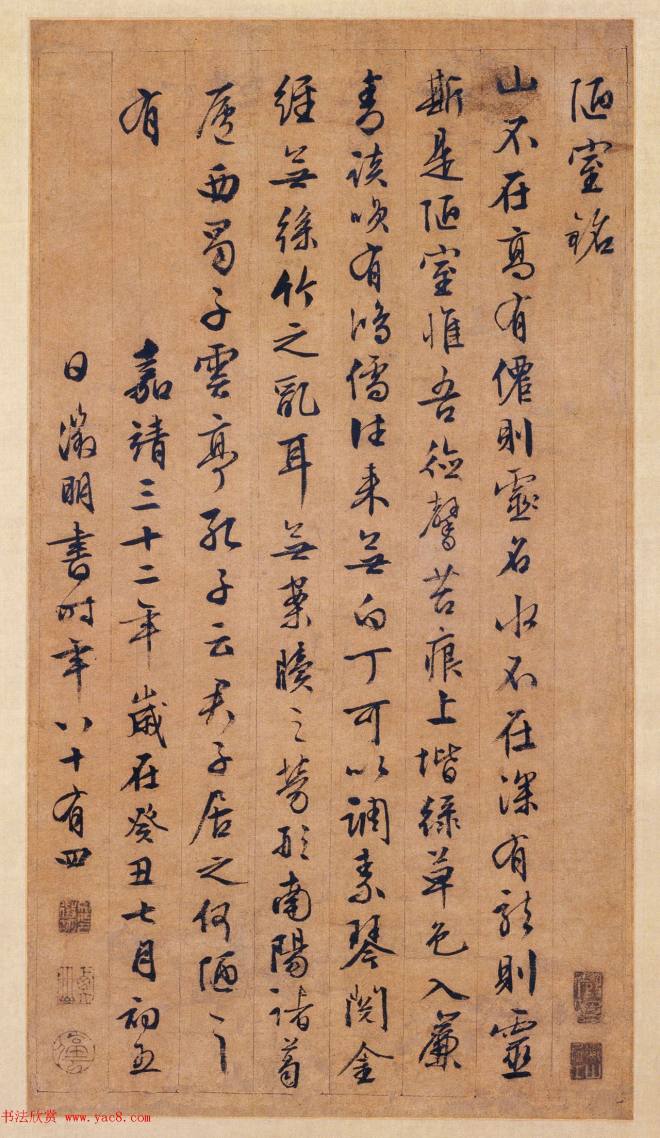 陋室銘
山不在高有僊則靈名水不在深有龍則靈
斯是陋室惟吾德馨苔痕上堦綠草色入簾
青談咲有鴻儒往來無白丁可以調素琴閱金
經無絲竹之亂耳無案牘之勞形南陽諸葛
廬西蜀子雲亭孔子云君子居之何陋之
有 嘉靖三十二年歲在癸丑七月初五
日徵明書時年八十有四
书法欣赏 www.yac8.com